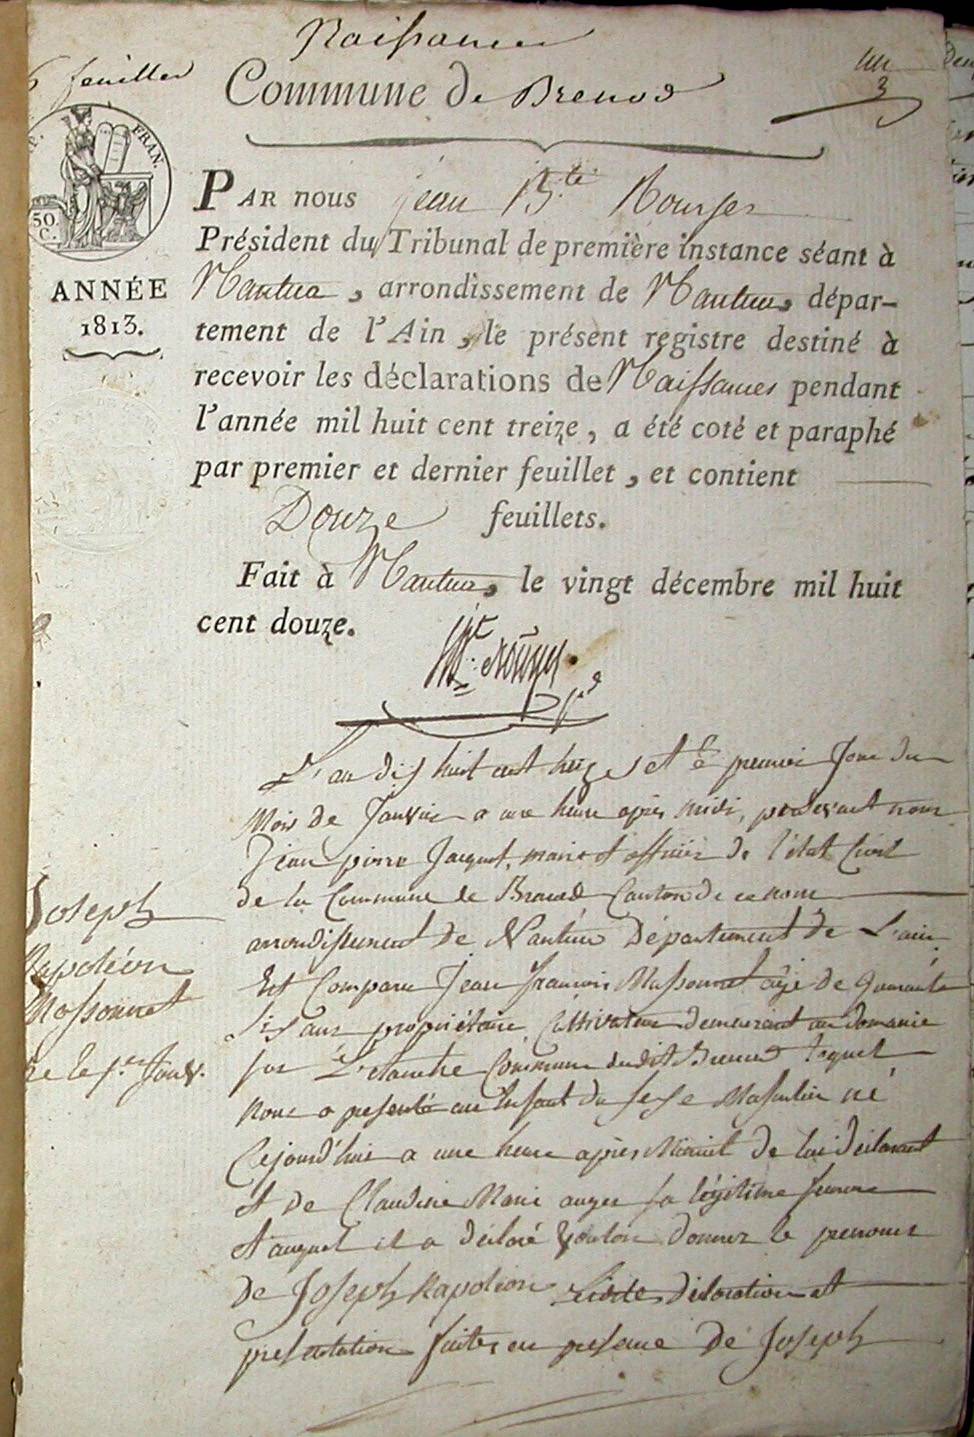 Naissances
feuillets
Commune de Brenod
un
3
FRAN.
50
C.
PAR nous jean B.te Rouyer
Président du Tribunal de première instance séant à
ANNÉE
1813.
Nantua, arrondissement de Nantua, dépar-
tement de l'Ain, le présent registre destiné à
recevoir les déclarations de Naissances pendant
l'année mil huit cent treize, a été coté et paraphé
par premier et dernier feuillet, et contient
Douze feuillets.
Fait à Nantua, le vingt décembre mil huit
cent douze.
L'an dix huit cent treize et le premier Jour du
Mois de Janvier a une heure après midi, pardevant nous
Jean pierre Jacquet, maire et officier de l'état Civil
de la Commune de Brenod Canton de ce nom
arrondissement de Nantua Département de L'ain
Est Comparu Jean françois Massonnet agé de quarante
Six ans propriétaire Cultivateur demeurant au Domaine
sur Commune dudit Brenod lequel
nous a présenté un Enfant du sexe Masculin né
Cejourd'hui a une heure après Minuit de lui déclarant
et de Claudine Marie auger sa légitime femme
et auquel il a déclaré vouloir donner le prenoms
de Joseph Napoléon déclaration et
présentation faites en présence de Joseph
Joseph
Napoléon
Massonnet
né le 1.er Janv.